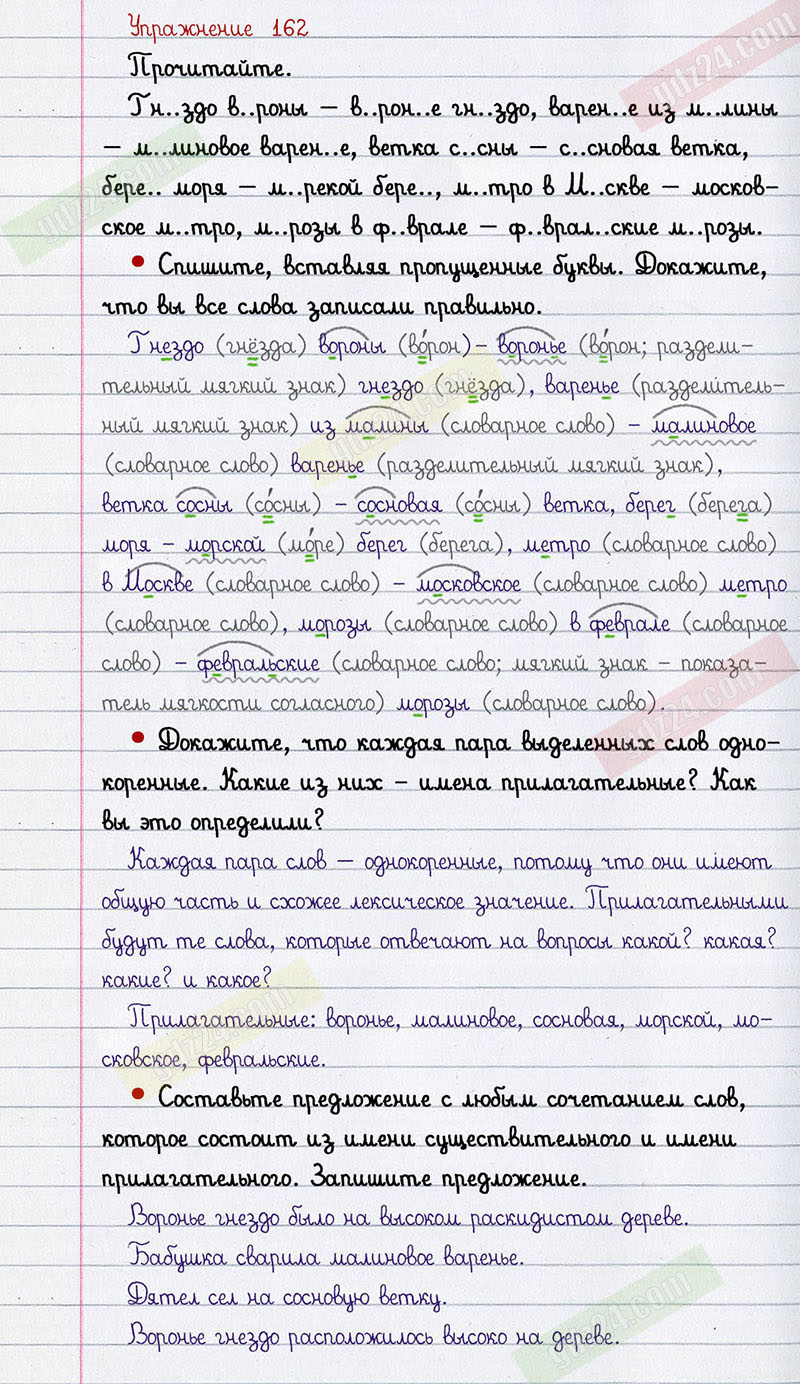 Упражнение 162
Прочитайте.
Гн..здо в..роны – в..рон..е гн..здо, варен..е из м..лины
– м..линовое варен..е, ветка с..сны – с..сновая ветка,
бере.. моря – м..рской бере.., м..тро в М..скве – москов-
ское м..тро, м..розы в ф..врале – ф..врал..ские м..розы.
• Спишите, вставляя пропущенные буквы. Докажите,
что вы все слова записали правильно.
Гнездо (гнёзда) вороны (во́рон) – воронье (во́рон; раздели-
тельный мягкий знак) гнездо (гнёзда), варенье (разделитель-
ный мягкий знак) из малины (словарное слово) – малиновое
(словарное слово) варенье (разделительный мягкий знак),
ветка сосны (со́сны) – сосновая (со́сны) ветка, берег (берега)
моря – морской (мо́ре) берег (берега), метро (словарное слово)
в Москве (словарное слово) – московское (словарное слово) метро
(словарное слово), морозы (словарное слово) в феврале (словарное
слово) – февральские (словарное слово; мягкий знак – показа-
тель мягкости согласного) морозы (словарное слово).
• Докажите, что каждая пара выделенных слов одно-
коренные. Какие из них – имена прилагательные? Как
вы это определили?
Каждая пара слов – однокоренные, потому что они имеют
общую часть и схожее лексическое значение. Прилагательными
будут те слова, которые отвечают на вопросы какой? какая?
какие? и какое?
Прилагательные: воронье, малиновое, сосновая, морской, мо-
сковское, февральские.
• Составьте предложение с любым сочетанием слов,
которое состоит из имени существительного и имени
прилагательного. Запишите предложение.
Воронье гнездо было на высоком раскидистом дереве.
Бабушка сварила малиновое варенье.
Дятел сел на сосновую ветку.
Воронье гнездо расположилось высоко на дереве.
gdz24.com
gdz24.com
gdz24.com
gdz24.com
gdz24.com
gdz24.com